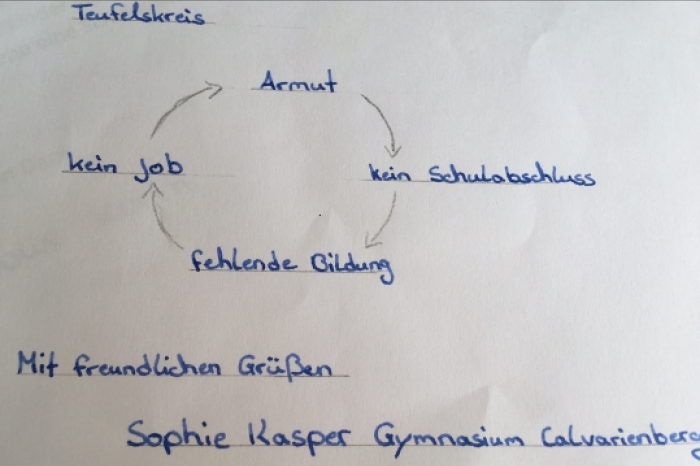 Teufelskreis
Armut
kein Job
kein Schulabschluss
fehlende Bildung
Mit freundlichen Grüßen
Sophie Kasper Gymnasium Calvarienberg